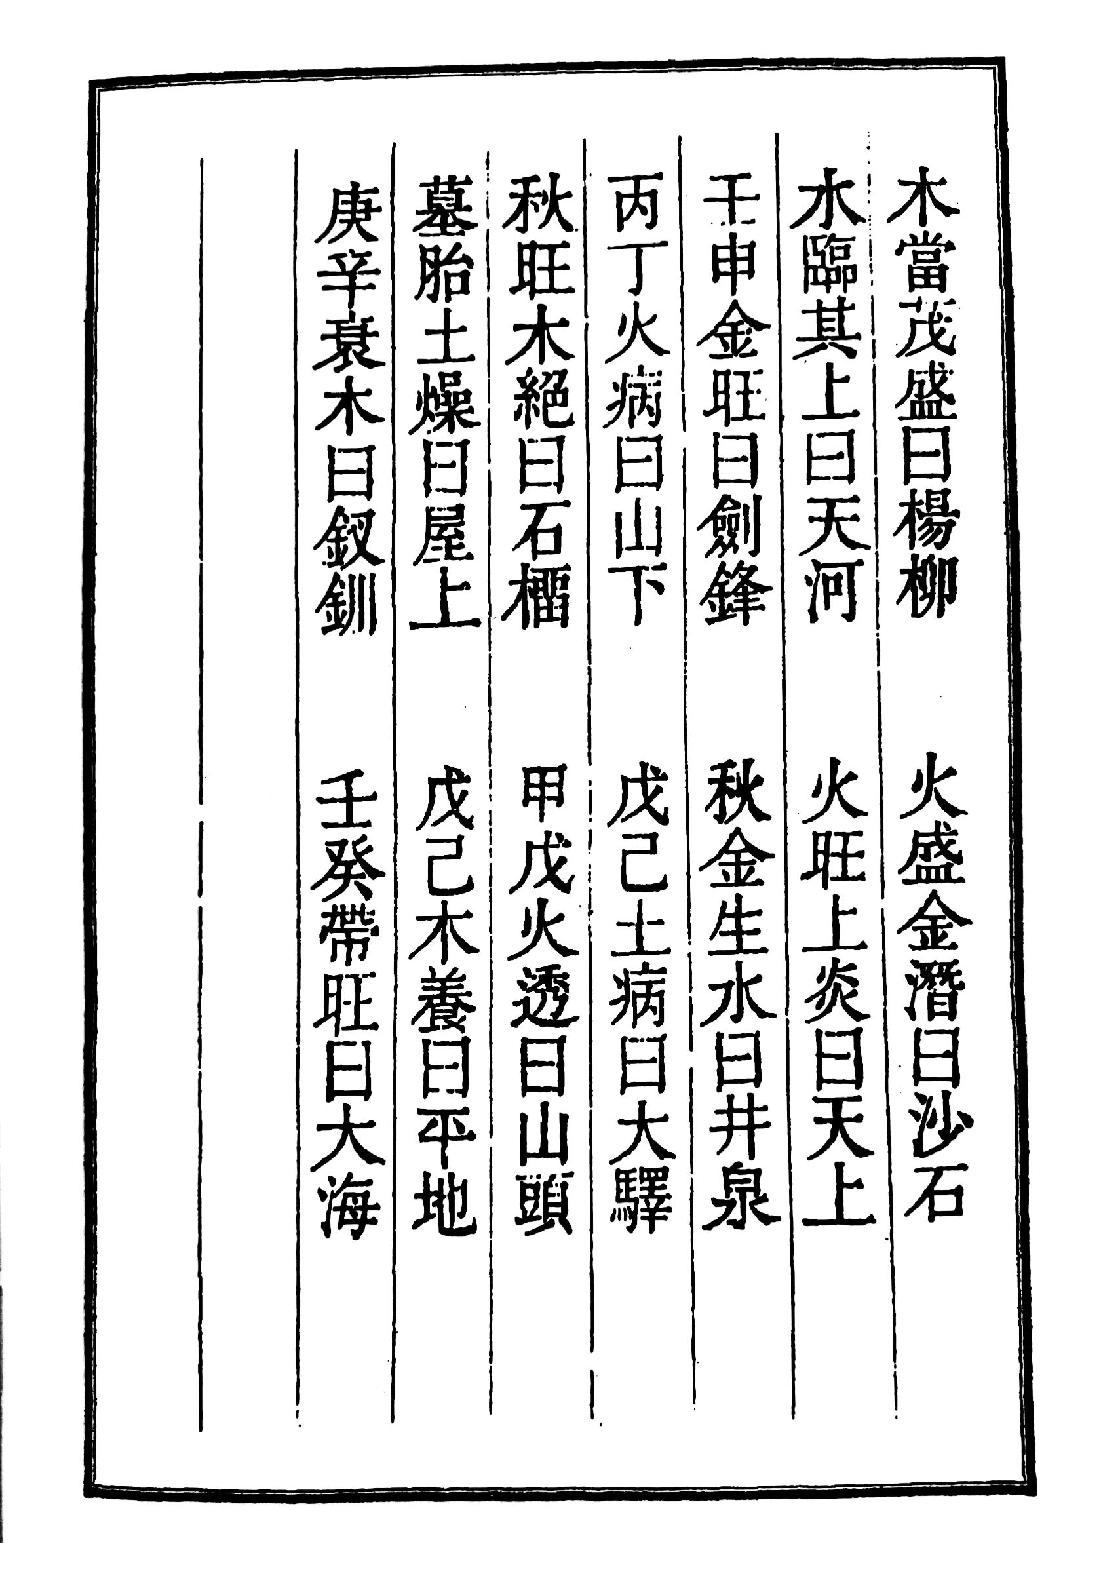 木當茂盛曰楊柳　火盛金潛曰沙石
水臨其上曰天河　火旺上炎曰天上
壬申金旺曰劍鋒　秋金生水曰井泉
丙丁火病曰山下　戊己土病曰大驛
秋旺木絕曰石橊　甲戊火透曰山頭
墓胎土燥曰屋上　戊己木養曰平地
庚辛衰木曰釵釧　壬癸帶旺曰大海